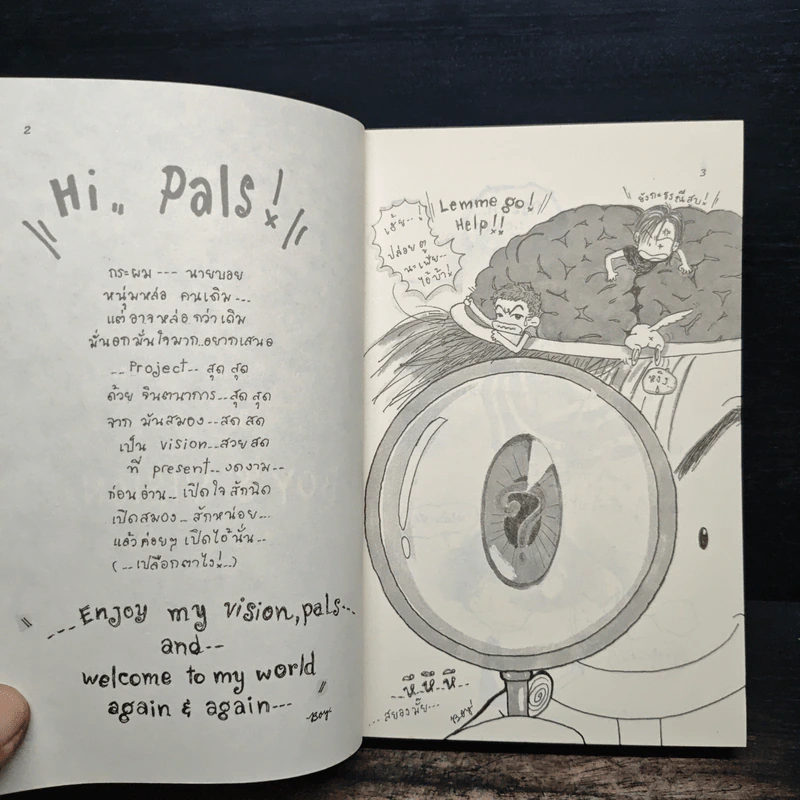 2
Hi,, Pals!
กระผม --- นายบอย
หนุ่มหล่อ คนเดิม ---
แต่ อาจหล่อ กว่าเดิม
มั่นอกมั่นใจมาก..อยากเสนอ
-- Project -- สุด สุด
ด้วย จินตนาการ -- สุด สุด
จาก มันสมอง -- สด สด
เป็น vision -- สวย สด
ที่ present -- งดงาม --
ก่อนอ่าน -- เปิดใจ สักนิด
เปิดสมอง -- สักหน่อย --
แล้ว ค่อยๆ เปิดไอ้นั่น --
(-- เปลือกตาไง! --)
--- Enjoy my vision, pals ---
and --
welcome to my world
again & again ---
-BOY
3
เฮ้ย--!
ปล่อย กู
นะเฟ้ย--
ไอ้บ้า!
Lemme go!
Help!!
ยังกะธรณีสูบ!
-- หึ -- หึ -- หึ --
--- สยองมั้ย ---
BOY